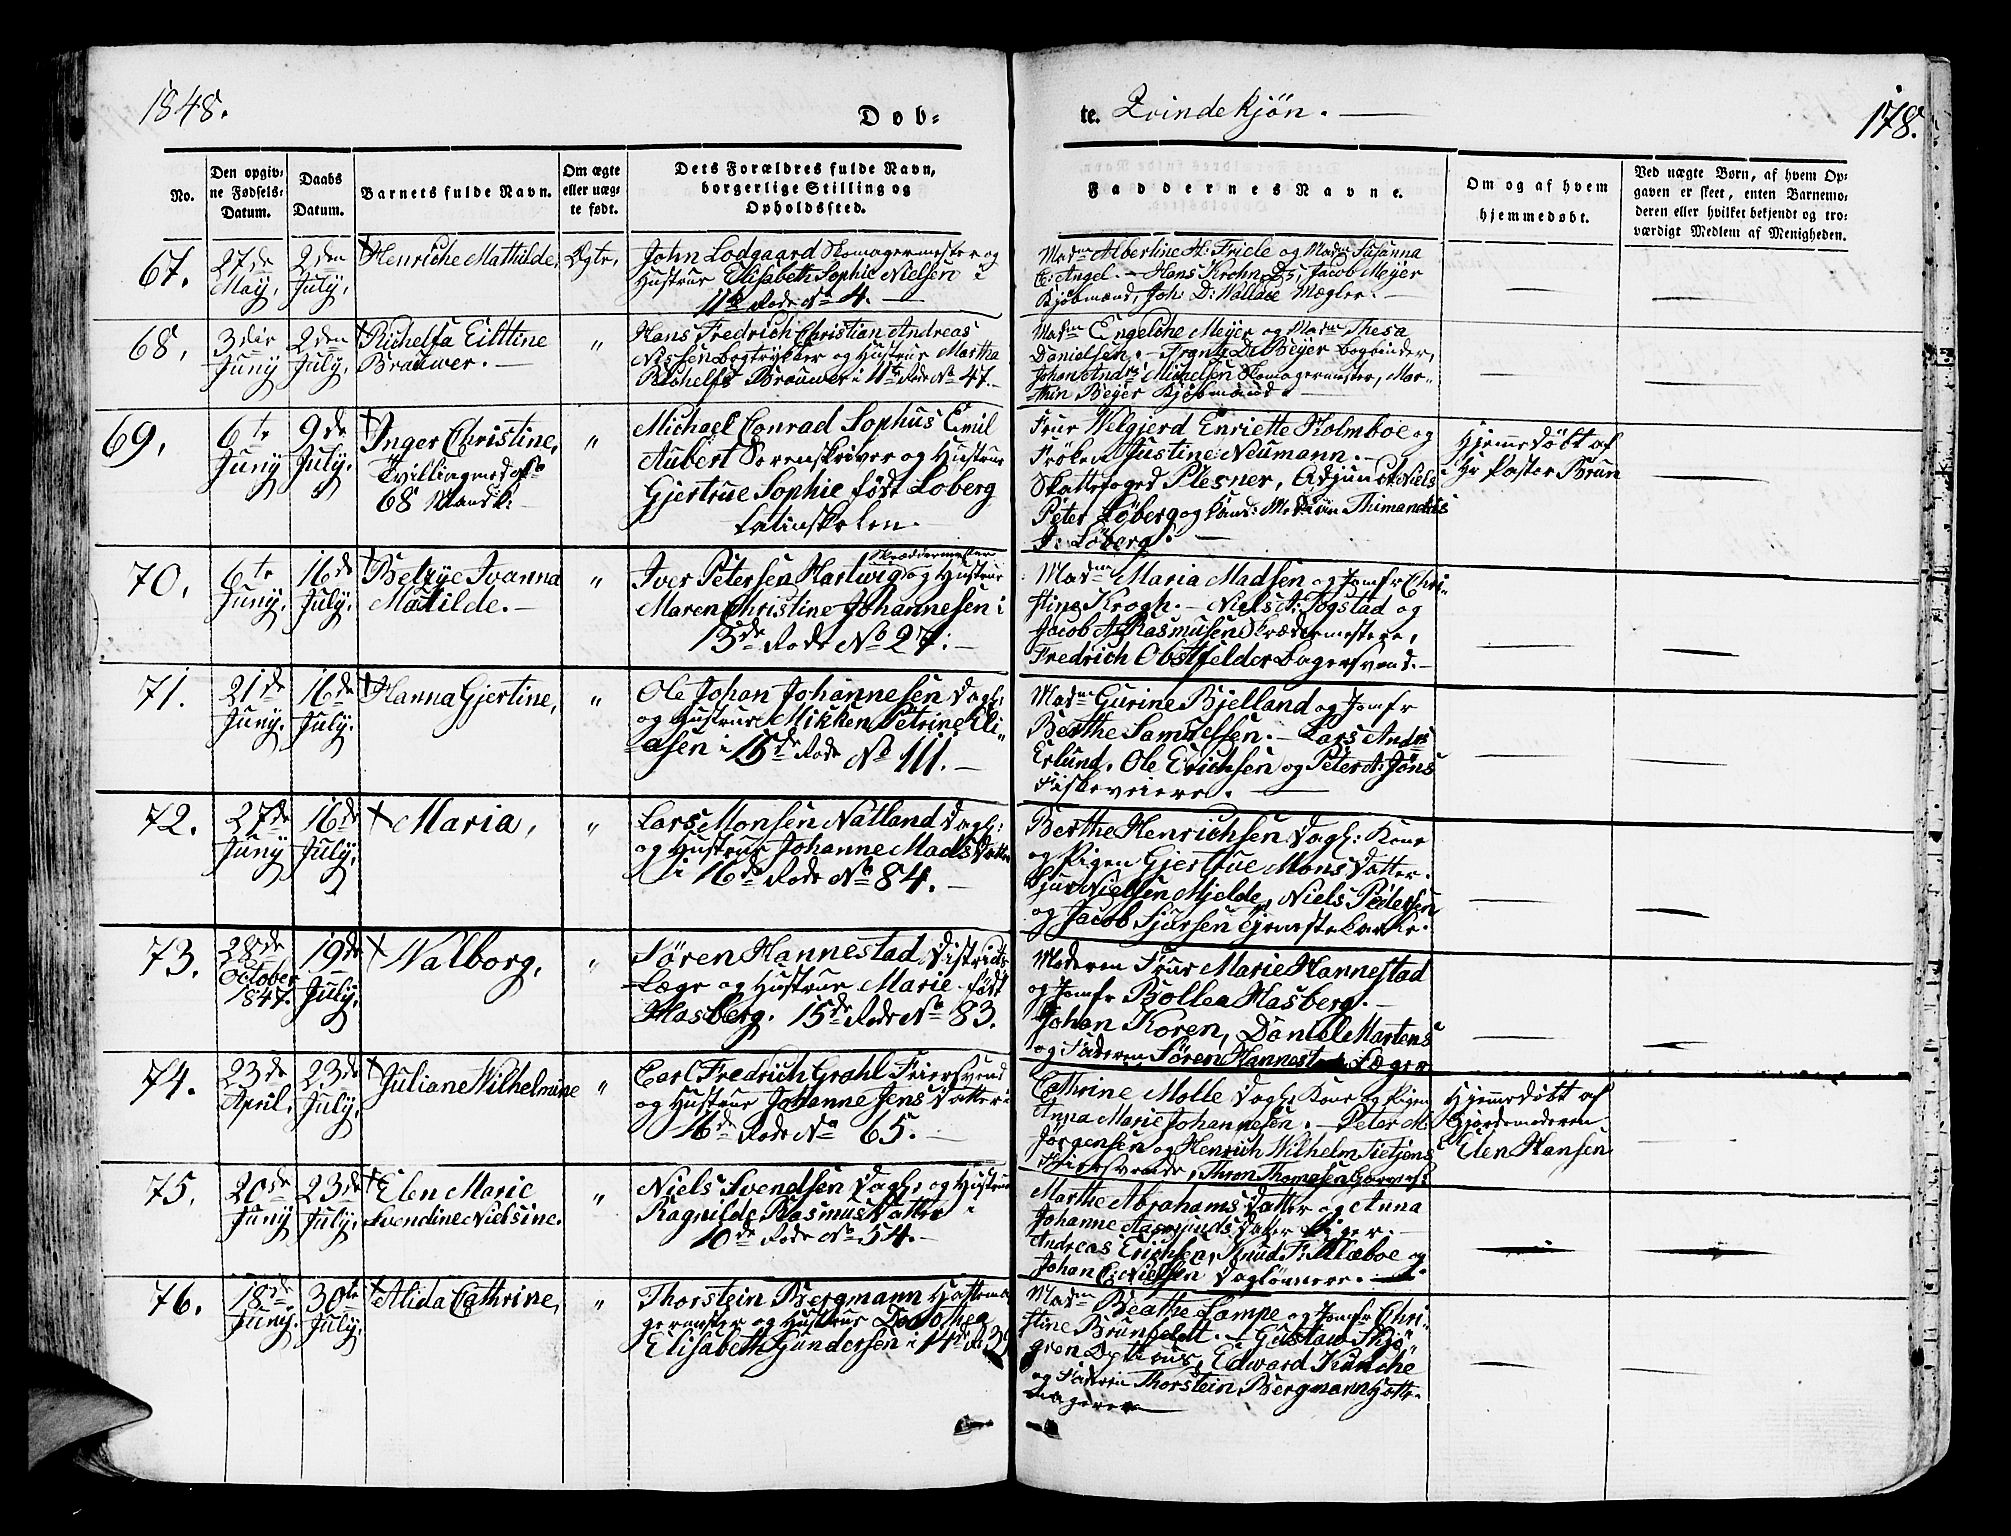 1848.
Døb-
te. Qvindekjøn.
178.
No.
Den opgiv-
ne Fødsels-
Datum.
Daabs
Datum.
Barnets fulde Navn.
Om ægte
eller uæg-
te født.
Dets Forældres fulde Navn,
borgerlige Stilling og
Opholdssted.
Faddernes Navne.
Om og af hvem
hjemmedøbt.
Ved uægte Børn, af hvem Op-
gaven er skeet, enten Barnemo-
deren eller hvilket bekjendt og tro-
værdigt Medlem af Menigheden.
67.
27de
May,
2den
July,
Henriche Mathilde,
Ægte,
John Lodgaard Skomagermester og
Hustrue Elisabeth Sophie Nielsen i
11te Rode No 4.
Madm Albertine H: Friele og Madm Susanna
C: Angel. - Hans Krohn, Jacob Meyer
Kjøbmænd, Joh: D: Wallace Mægler.
68,
3die
Juny
2den
July,
Richelfa Eilttine
Brauwer.
"
Hans Fredrich Christian Andreas
Nissen Bogtrykker og Hustrue Martha
Richelfs Brauwer i 11te Rode No 47.
Madm Engelche Meyer og Madm Thesa
Danielsen. - Frantz D: Beyer Bogbinder,
Johan Andrs Michelsen Skomagermester, Mar-
thin Beyer Kjøbmand.
69,
6te
Juny
9de
July,
Inger Christine,
Tvilling med
68 Mandk:
"
Michael Conrad Sophus Emil
Aubert Sorenskriver og Hustrue
Gjertrue Sophie født Løberg
Latinskolen.
Frue Welgjerd Enriette Holmboe og
Frøken Justine Neumann. -
Skattefoged Plesner, Adjunct Niels
Peter Løberg og Cand: Thimandus
J: Løberg.
Hjemedøbt af
Hr Pastor Brun
70,
6te
Juny,
16de
July,
Betzye Ivanna
Matilde.
"
Iver Petersen Hartwig Skræddermester og Hustrue
Maren Christine Johannesen i
13de Rode No 27.
Madm Maria Madsen og Jomfr Chri-
stine Krogh. - Niels A: Togstad og
Jacob A: Rasmusen Skrædermestere,
Fredrich Obstfelder Bagersvend.
71.
21de
Juny.
16de
July.
Hanna Gjertine,
"
Ole Johan Johannesen Dagl:
og Hustrue Mikken Petrine Eli-
asen i 15de Rode No 111.
Madm Gurine Bjelland og Jomfr
Berthe Samuelsen. - Lars Andrs
Erlund, Ole Erichsen og Peter A: Jøns
Fiskeveiere.
72.
27de
Juny
16de
July,
Maria,
"
Lars Monsen Natland Dagl:
og Hustrue Johanne Mads Datter
i 16de Rode No 84.
Berthe Henrichsen Dagl: Kone
og Pigen Gjertrue Mons Datter.
Sjur Nielsen Mjelde, Niels Pedersen
og Jacob Sjursen Tjenestekarle.
73.
28de
October
1847.
19de
July,
Valborg,
"
Søren Hannestad District
Læge og Hustrue Marie født
Hasberg. 15de Rode No 83.
Moderen Frue Marie Hannestad
og Jomfr Bollea Hasberg. -
Johan Koren, Daniel Martens
og Faderen Søren Hannestad Læger
74.
23de
April,
23de
July,
Juliane Wilhelmine
"
Carl Fredrich Grahl Feiersvend
og Hustrue Johanne Jens Datter i
16de Rode No 65.
Cathrine Molle Dagl: Kone og Pigen
Anna Marie Johannesen. - Peter M:
Jørgensen og Henrich Wilhelm Tietjens
Feiersvende, Thron Thomasen
Hjemedøbt af
Gjordemoderen
Elen Hansen
75.
20de
Juny
23de
July,
Elen Marie
Svendine Nielsine.
"
Niels Svendsen Dagl: og Hustrue
Ragnilde Rasmus Datter i
16de Rode No 54.
Marthe Abrahams Datter og Anna
Johanne Aasmunds Datter Piger.
Andreas Erichsen, Knud F: Næboe og
Johan C: Nielsen Daglønnere.
76.
18de
Juny.
30te
July,
Alida Cathrine,
"
Thorstein Bergmann Hattema-
germester og Hustrue Dorothea
Elisabeth Gundersen i 14de
Madm Beathe Lampe og Jomfr Chri-
stine Brunfeldt. - Gustav Skjø-
gren Opticus, Edward Kunche
og Faderen Thorstein Bergmann Hatte-
magere